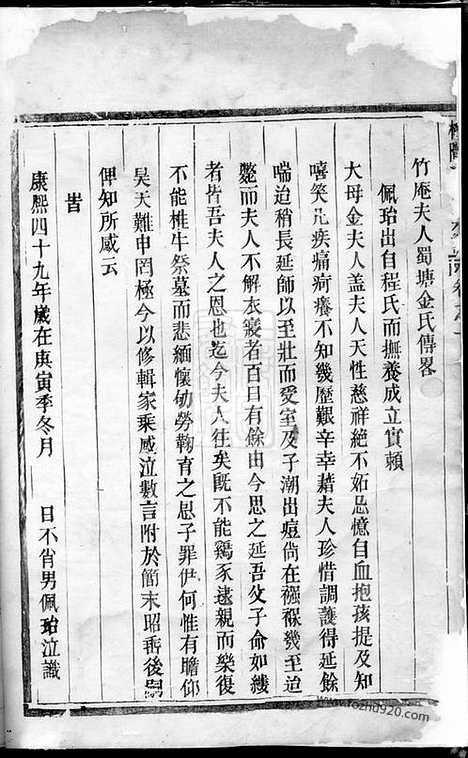 竹庵夫人蜀塘金氏傳畧
佩珆出自程氏而撫養成立實賴
大母金夫人葢夫人天性慈祥絶不妬忌憶自血抱孩提及知
嘻笑凡疾痛疴癢不知幾歷艱辛幸藉夫人珍惜調護得延餘
喘迨稍長延師以至壯而受室及子潮出痘尙在襁褓幾至迨
斃而夫人不解衣寢者百日有餘由今思之延吾父子命如縷
者皆吾夫人之恩也迄今夫人往矣旣不能鷄豕逮親而樂復
不能椎牛祭墓而悲緬懷劬勞鞠育之恩子罪伊何惟有瞻仰
昊天難申罔極今以修輯家乘感泣數言附於簡末昭垂後
俾知所感云
旹
康熙四十九年歲在庚寅季冬月 日不肖男佩珆泣識
www.fozhu920.com